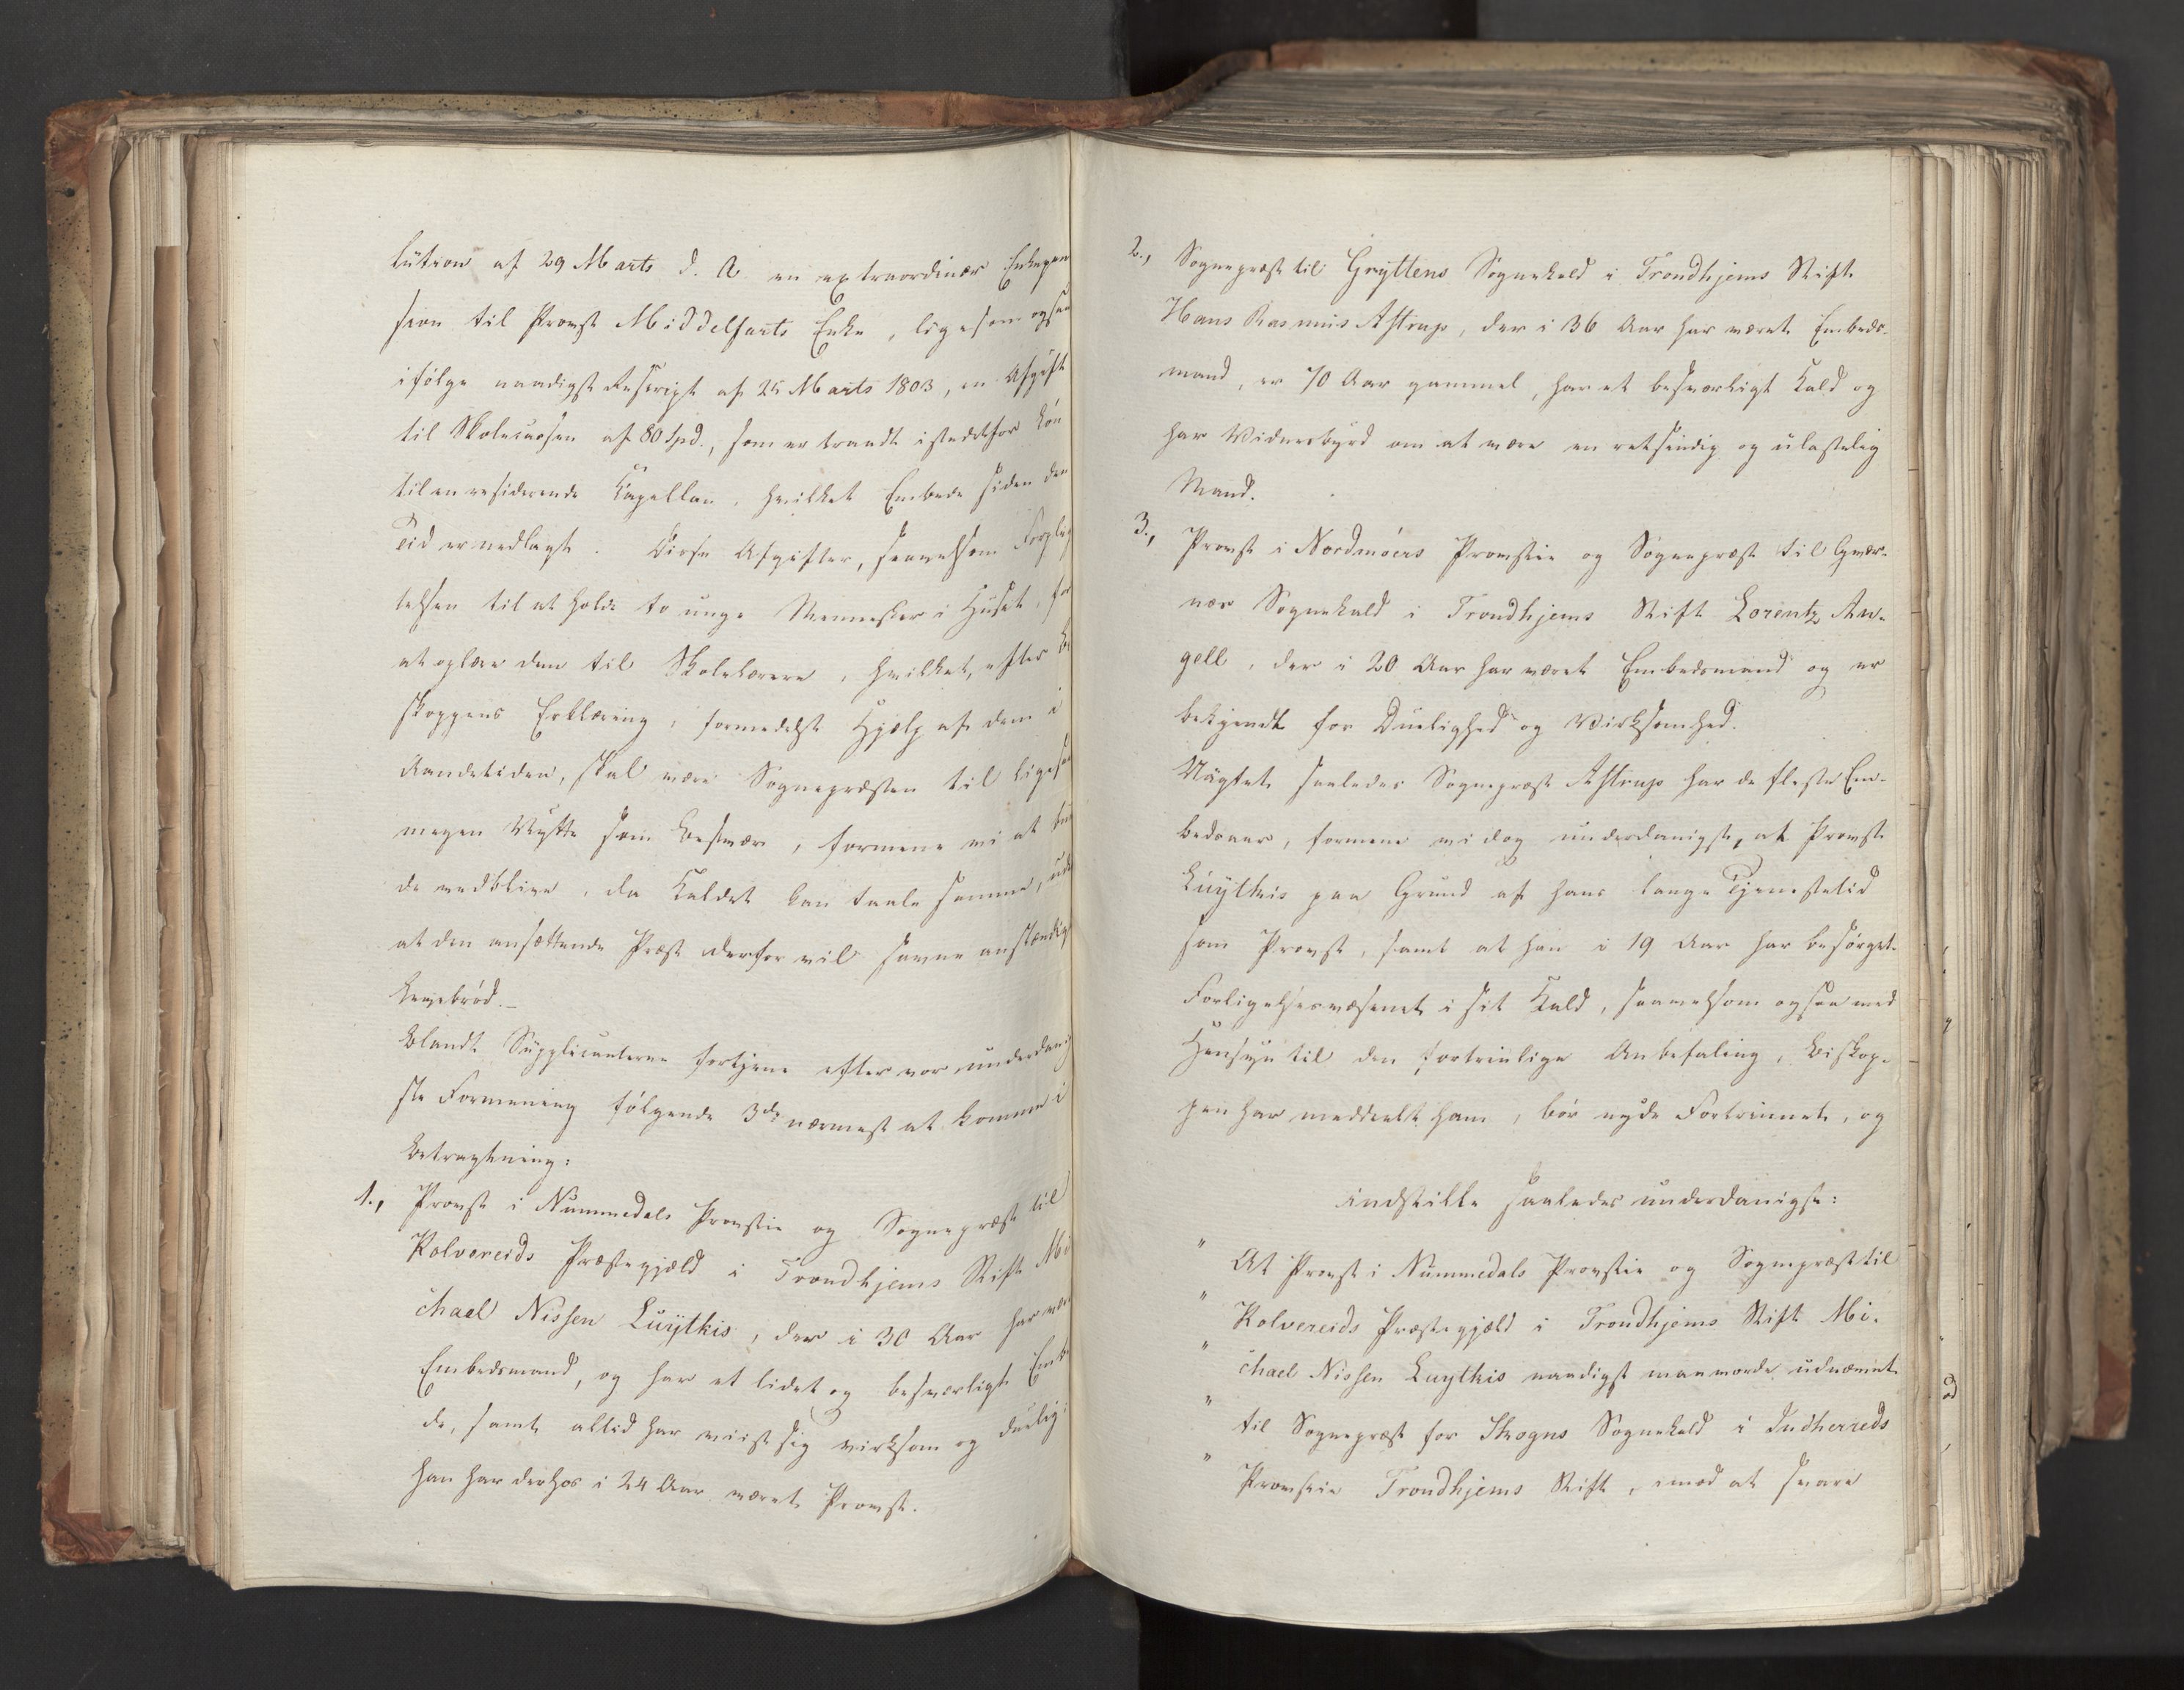 lution af 29 Marts d. A. en extraordinær Enkepen
sion til Provst Middelfarts Enke, ligesom ogsaa
ifølge naadigst Rescript af 25 Marts 1803, en Afgift
til Skolecassen af 80 Spd., som er traadt istedetfor Løn
til en residerende Kapellan, hvilket Embede siden den
Tid er nedlagt. Disse Afgifter, saavelsom Forplig
telsen til at holde to unge Mennesker i Huset, for
at oplære dem til Skolelærere, hvilket, efter Bi
skoppens Erklæring, formedelst Hjælp af dem i
Aandetiden, skal være Sognepræsten til ligesaa
megen Nytte som Besvær, formene vi at bur
de vedblive, da Kaldet kan taale samme, uden
at den ansættende Præst derfor vil savne anstændigt
Levebrød. –
Blandt Supplicanterne fortjene efter vor underdanig
ste Formening følgende 3de nærmest at komme i
Betragtning:
1., Provst i Nummedals Provstie og Sognepræst til
Kolvereids Præstegjæld i Trondhjems Stift Mi
chael Nissen Luytkis, der i 30 Aar har være
Embedsmand, og har et lidet og besværligt Embe
de, samt altid har viist sig virksom og duelig:
han har derhos i 24 Aar været Provst.
2., Sognepræst til Gryttens Sognekald i Trondhjems Stift
Hans Rasmus Astrup, der i 36 Aar har været Embeds-
mand, er 70 Aar gammel, har et besværligt Kald og
har Vidnesbyrd om at være en retsindig og ulastelig
Mand.
3., Provst i Nordmøers Provstie og Sognepræst til Qvær-
næs Sognekald i Trondhjems Stift Lorentz An-
gell, der i 20 Aar har været Embedsmand og er
bekjendt for Duelighed og Virksomhed.
Uagtet saaledes Sognepræst Astrup har de fleste Em-
bedsaar, formene vi dog underdanigst, at Provst
Luytkis paa Grund af hans lange Tjenestetid
som Provst, samt at han i 19 Aar har besørget
Forligelsesvæsenet i sit Kald, saavelsom ogsaa med
Hensyn til den fortrinlige Anbefaling, Biskop-
pen har meddeelt ham, bør nyde Fortrinnet, og
indstille saaledes underdanigst:
" At Provst i Nummedals Provstie og Sognepræst til
" Kolvereids Præstegjæld i Trondhjems Stift Mi-
" chael Nissen Luytkis naadigst maa vorde udnævnt
" til Sognepræst for Skogns Sognekald i Indherreds
" Provstie Trondhjems Stift, imod at svare